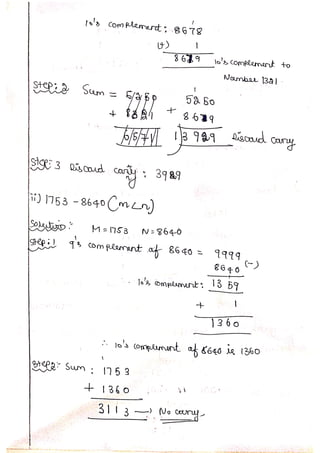 10's complement: 8678
(+) 1
8679 10's complement to
Number 1321
Step: 2 Sum = 5250 5250
+ 1321 + 8679
6571 1 3929 Discard carry
Step: 3 Discard carry : 3929
ii) 1753 - 8640 (M<N)
Solution:- M=1753 N=8640
Step:1 9's complement of 8640 = 9999
8640 (-)
10's complement: 1359
+ 1
1360
∴ 10's complement of 8640 is 1360
Step2:- Sum : 1753
+ 1360
3113 → No carry